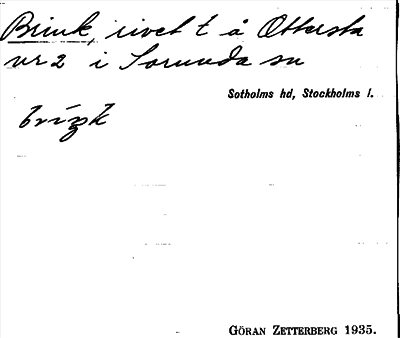 Brink, rivet t å Ottersta
nr 2 i Sorunda sn
Sotholms hd, Stockholms l.
briŋk
GÖRAN ZETTERBERG 1935.